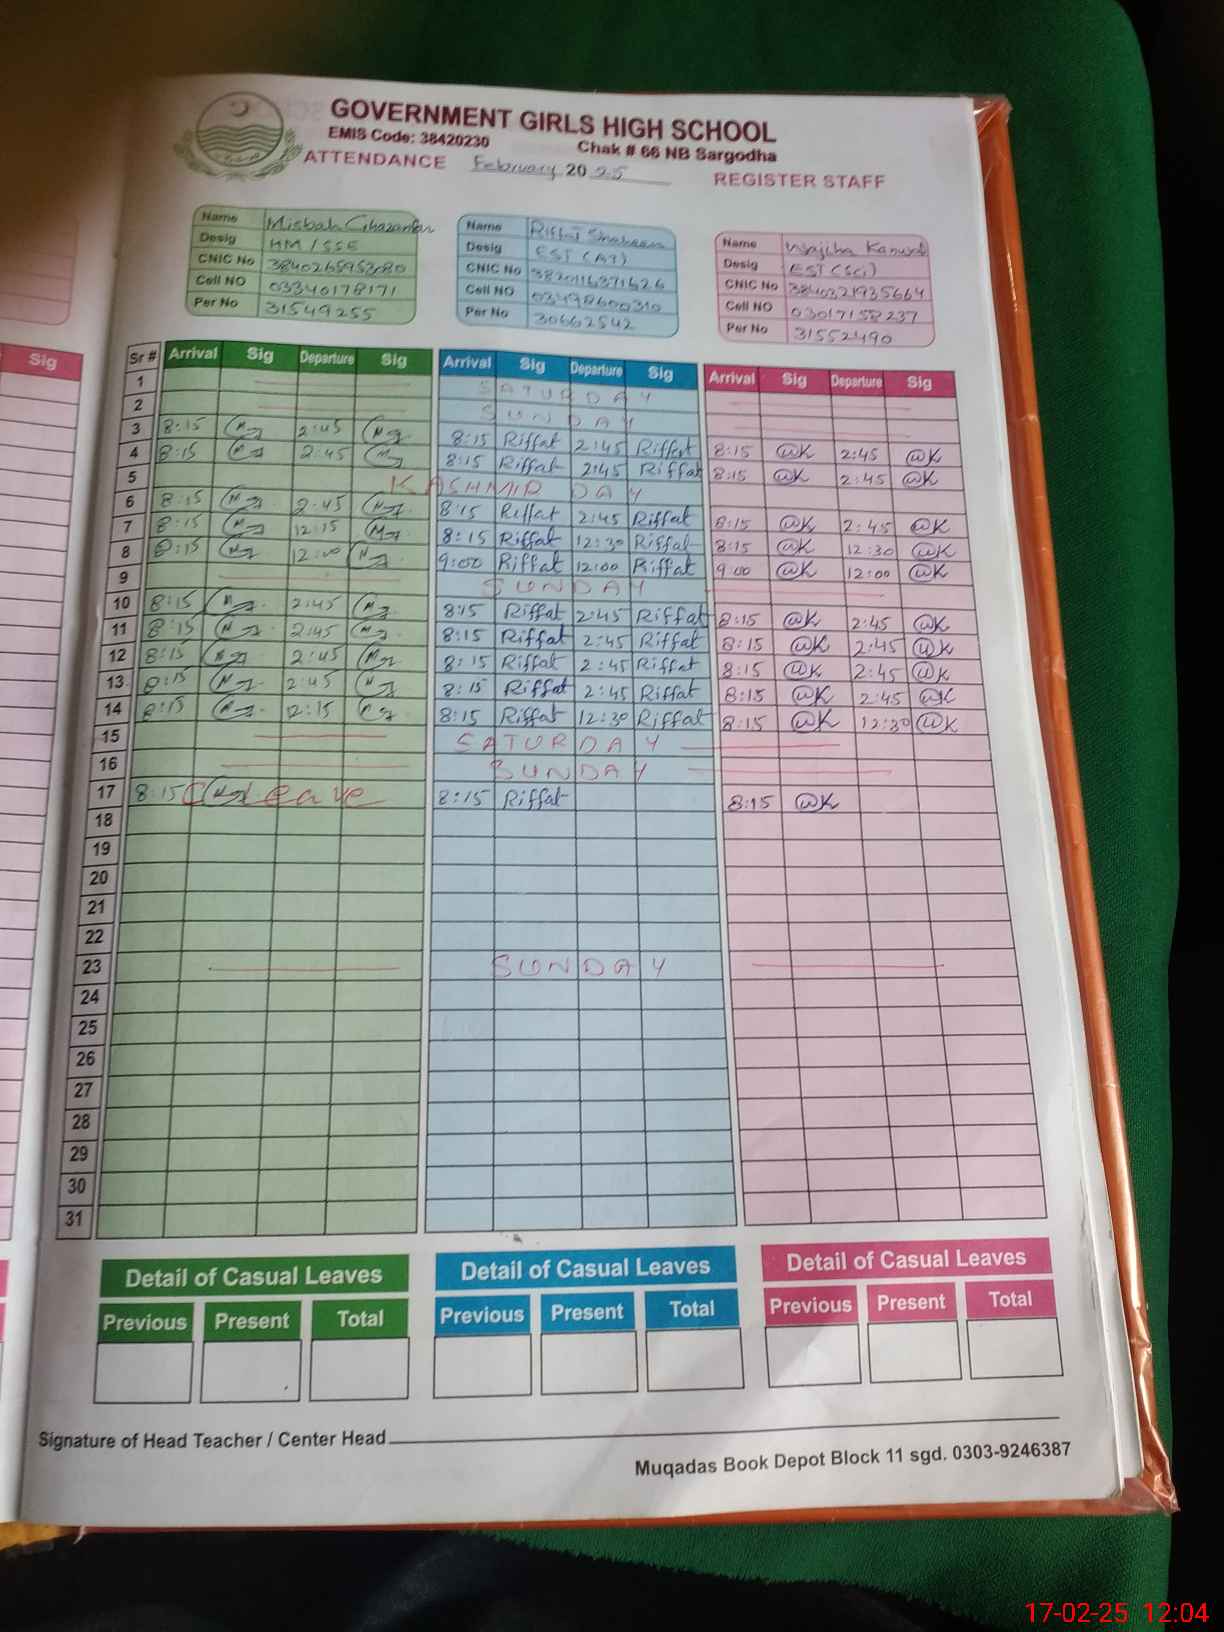 GOVERNMENT GIRLS HIGH SCHOOL
EMIS Code: 38420230 Chak # 66 NB Sargodha
ATTENDANCE February 2025 REGISTER STAFF
Name Misbah Ghazanfar
Desig HM / SSE
CNIC No 3840265953080
Cell NO 03340178171
Per No 31549255
Name Riffat Shaheen
Desig EST (AT)
CNIC No
Cell NO 03498600310
Per No 30662542
Name Wajiha Kanwal
Desig EST (Sci)
CNIC No 3840321935664
Cell NO 03017158237
Per No 31552490
Sig
Sr # Arrival Sig Departure Sig Arrival Sig Departure Sig Arrival Sig Departure Sig
1 SATURDAY
2 SUNDAY
3 8:15 2:45 8:15 Riffat 2:45 Riffat 8:15 @K 2:45 @K
4 8:15 2:45 8:15 Riffat 2:45 Riffat 8:15 @K 2:45 @K
5 KASHMIR DAY
6 8:15 2:45 8:15 Riffat 2:45 Riffat 8:15 @K 2:45 @K
7 8:15 12:15 8:15 Riffat 12:30 Riffat 8:15 @K 12:30 @K
8 8:15 12:00 9:00 Riffat 12:00 Riffat 9:00 @K 12:00 @K
9 SUNDAY
10 8:15 2:45 8:15 Riffat 2:45 Riffat 8:15 @K 2:45 @K
11 8:15 2:45 8:15 Riffat 2:45 Riffat 8:15 @K 2:45 @K
12 8:15 2:45 8:15 Riffat 2:45 Riffat 8:15 @K 2:45 @K
13 8:15 2:45 8:15 Riffat 2:45 Riffat 8:15 @K 2:45 @K
14 8:15 12:15 8:15 Riffat 12:30 Riffat 8:15 @K 12:30 @K
15 SATURDAY
16 SUNDAY
17 8:15 C Leave 8:15 Riffat 8:15 @K
18
19
20
21
22
23 SUNDAY
24
25
26
27
28
29
30
31
Detail of Casual Leaves Detail of Casual Leaves Detail of Casual Leaves
Previous Present Total Previous Present Total Previous Present Total
Signature of Head Teacher / Center Head
Muqadas Book Depot Block 11 sgd. 0303-9246387
17-02-25 12:04